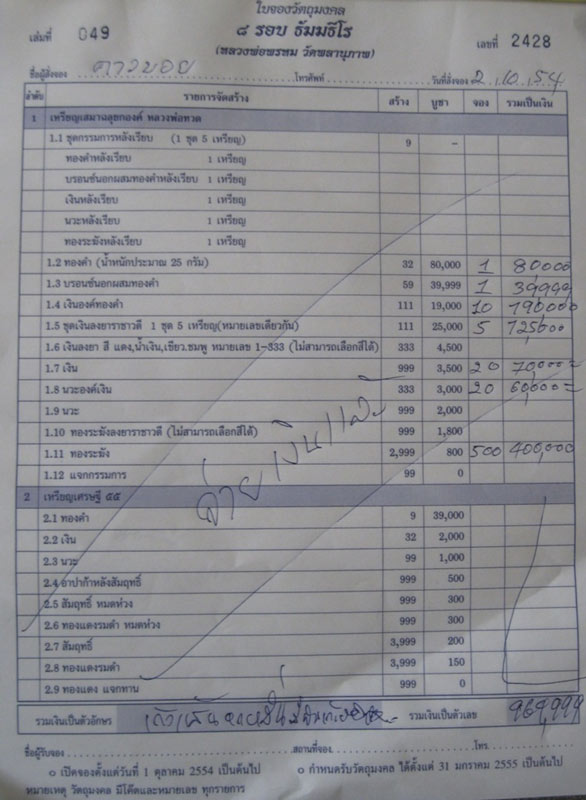 ใบจองวัตถุมงคล
เล่มที่ 049 ๘ รอบ ธัมมธีโร เลขที่ 2428
(หลวงพ่อพรหม วัดพลานุภาพ)
ชื่อผู้สั่งจอง ดาวบอย โทรศัพท์ วันที่สั่งจอง 2.10.54
ลำดับ รายการจัดสร้าง สร้าง บูชา จอง รวมเป็นเงิน
1 เหรียญเสมาฉลุยกองค์ หลวงพ่อทวด
1.1 ชุดกรรมการหลังเรียบ (1 ชุด 5 เหรียญ) 9 -
ทองคำหลังเรียบ 1 เหรียญ
บรอนซ์นอกผสมทองคำหลังเรียบ 1 เหรียญ
เงินหลังเรียบ 1 เหรียญ
นวะหลังเรียบ 1 เหรียญ
ทองระฆังหลังเรียบ 1 เหรียญ
1.2 ทองคำ (น้ำหนักประมาณ 25 กรัม) 32 80,000 1 80,000
1.3 บรอนซ์นอกผสมทองคำ 59 39,999 1 39,999
1.4 เงินองค์ทองคำ 111 19,000 10 190,000
1.5 ชุดเงินลงยาราชาวดี 1 ชุด 5 เหรียญ(หมายเลขเดียวกัน) 111 25,000 5 125,000
1.6 เงินลงยา สี แดง,น้ำเงิน,เขียว.ชมพู หมายเลข 1-333 (ไม่สามารถเลือกสีได้) 333 4,500
1.7 เงิน 999 3,500 20 70,000=
1.8 นวะองค์เงิน 333 3,000 20 60,000=
1.9 นวะ 999 2,000
1.10 ทองระฆังลงยาราชาวดี (ไม่สามารถเลือกสีได้) 999 1,800
1.11 ทองระฆัง 2,999 800 500 400,000
1.12 แจกกรรมการ 99 0
จ่ายเงินแล้ว
2 เหรียญเศรษฐี ๕๕
2.1 ทองคำ 9 39,000
2.2 เงิน 32 2,000
2.3 นวะ 99 1,000
2.4 อาปาก้าหลังสัมฤทธิ์ 999 500
2.5 สัมฤทธิ์ หมดห่วง 999 300
2.6 ทองแดงรมดำ หมดห่วง 999 300
2.7 สัมฤทธิ์ 3,999 200
2.8 ทองแดงรมดำ 3,999 150
2.9 ทองแดง แจกทาน 999 0
รวมเงินเป็นตัวอักษร รวมเงินเป็นตัวเลข 964,999
ชื่อผู้รับจอง สถานที่จอง โทร.
๐ เปิดจองตั้งแต่วันที่ 1 ตุลาคม 2554 เป็นต้นไป ๐ กำหนดรับวัตถุมงคล ได้ตั้งแต่ 31 มกราคม 2555 เป็นต้นไป
หมายเหตุ วัตถุมงคล มีโค๊ดและหมายเลข ทุกรายการ